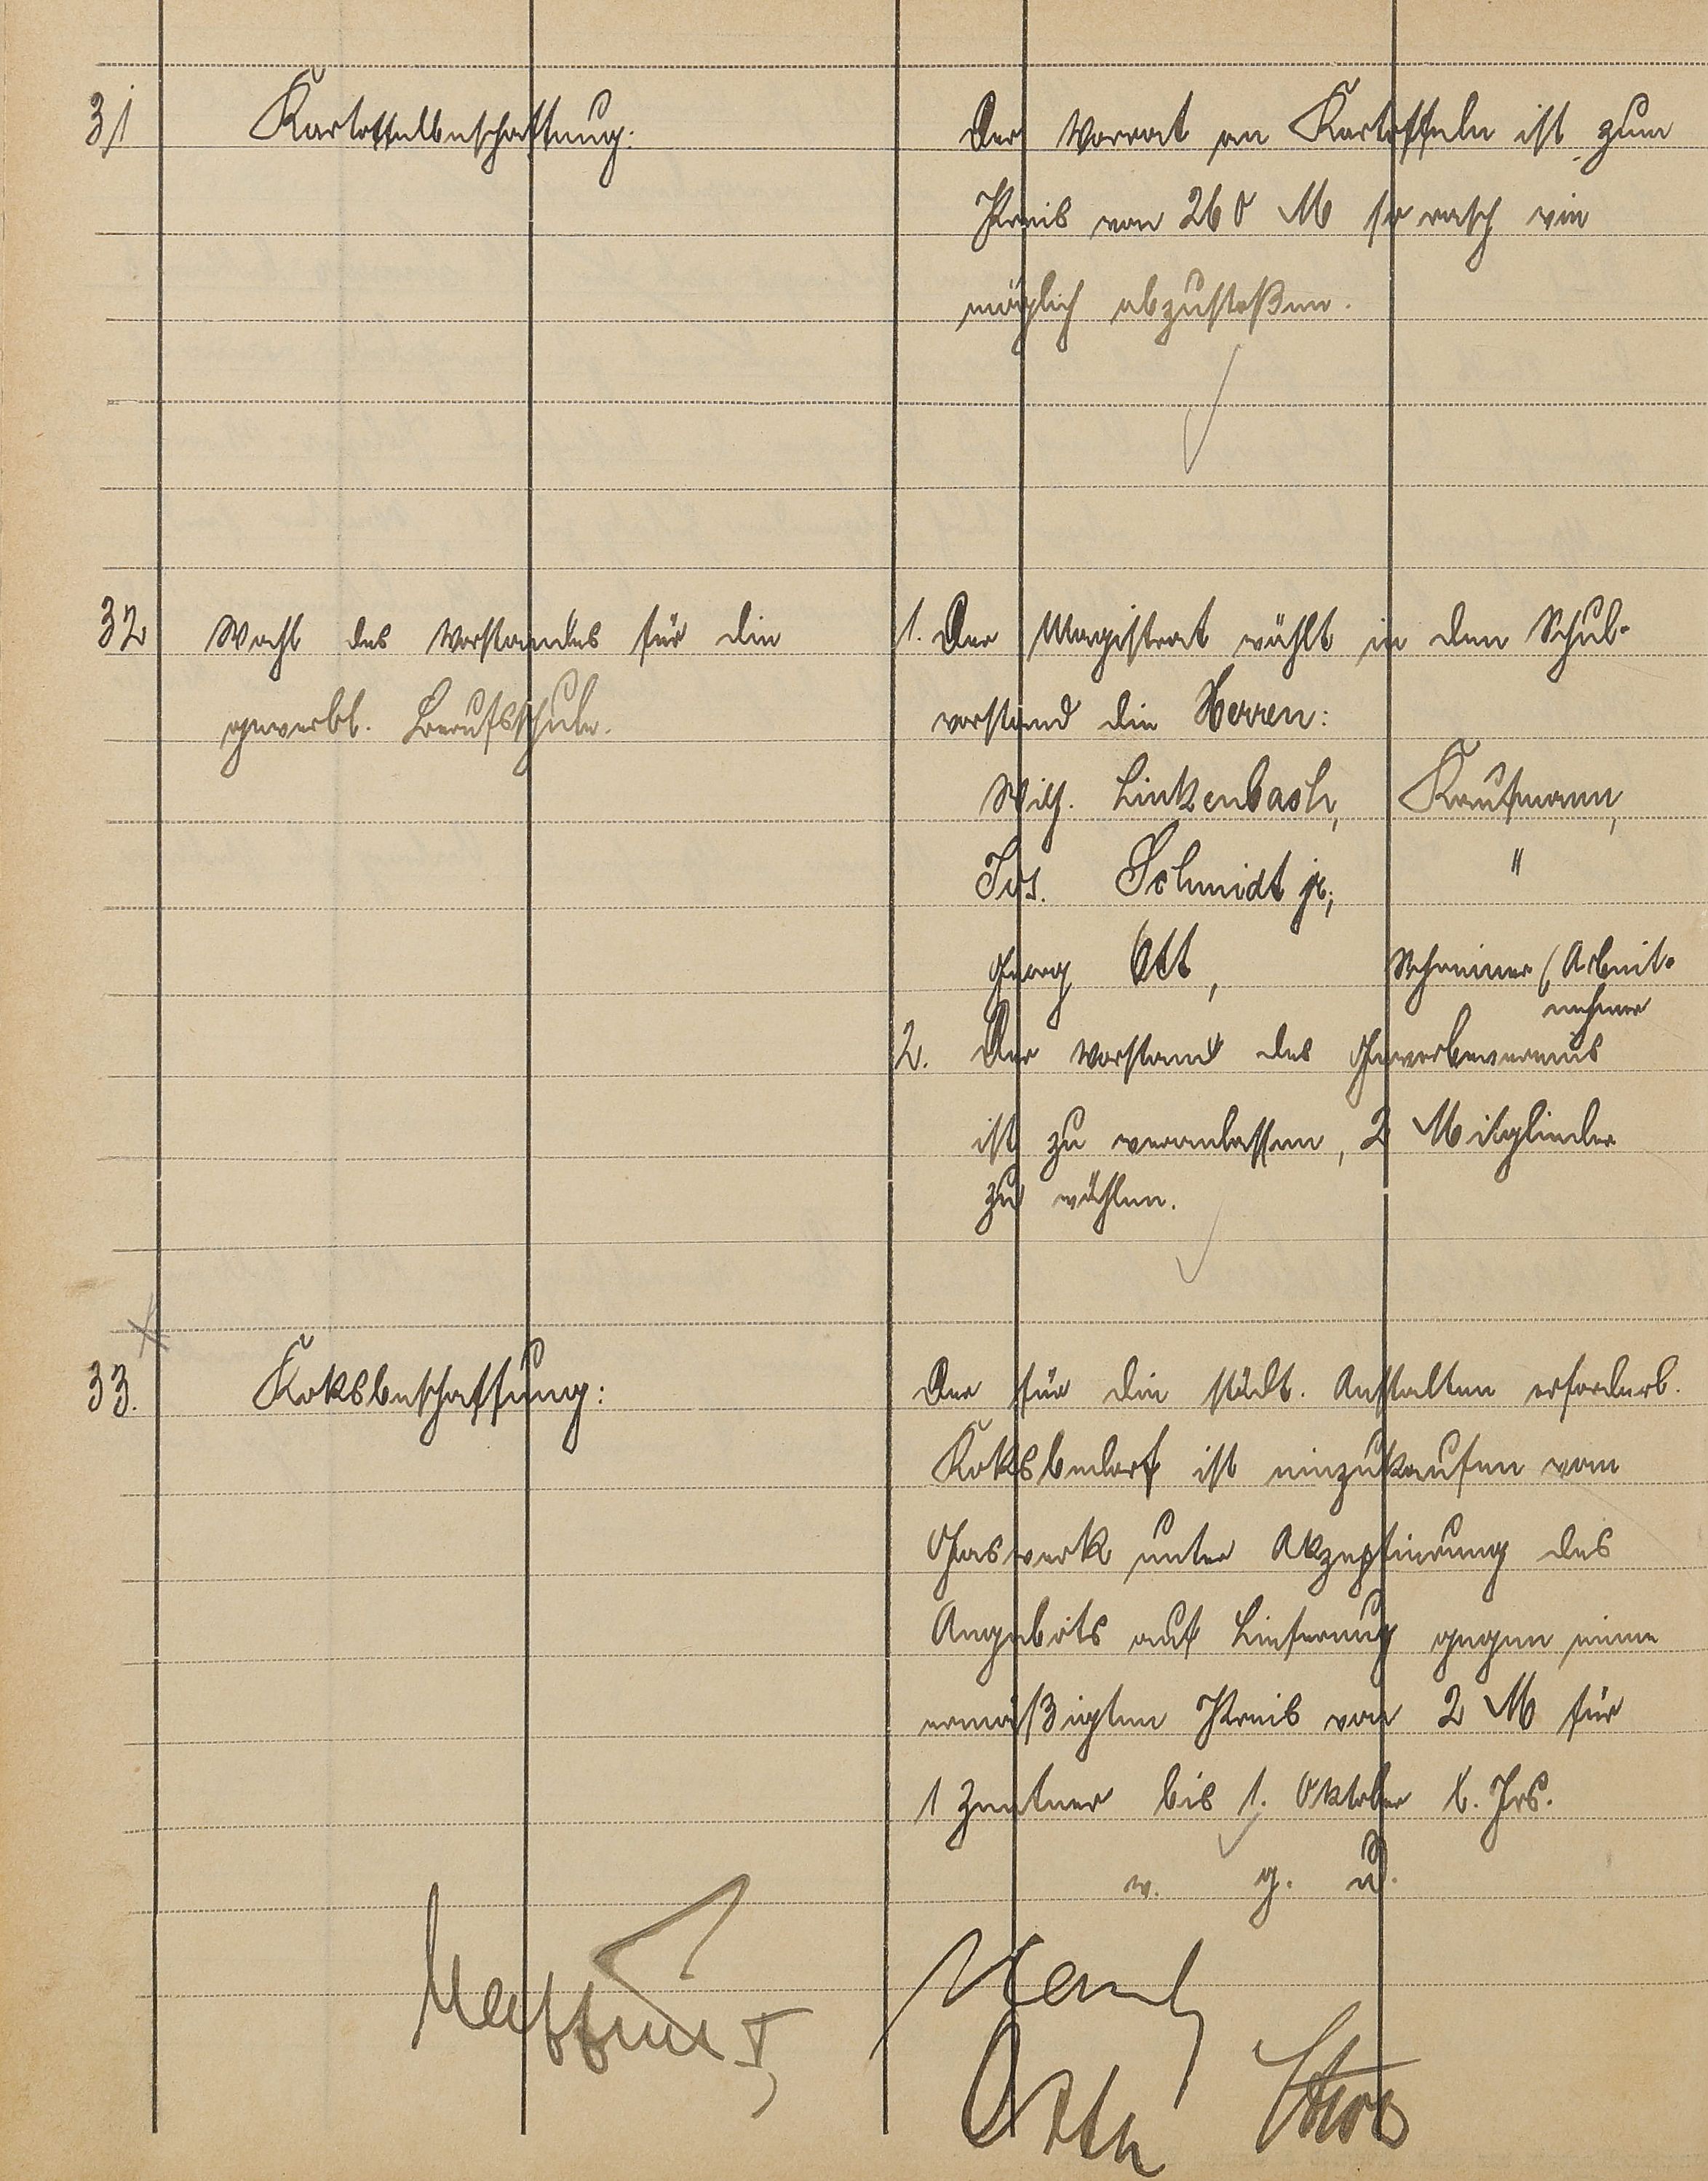 31
Kartoffelbeschaffung:
Der Vorrat an Kartoffeln ist zum
Preis von 260 M so rasch wie
möglich abzustoßen.
32
Wahl des Vorstandes für die
gewerbl. Berufsschule.
1. Der Magistrat wählt in den Schul-
vorstand die Herren:
Wilh. Linkenbach, Kaufmann,
Jos. Schmidt jr., "
Georg Ott, Schreiner (Arbeit-
nehmer
2. Der Vorstand des Gewerbevereins
ist zu veranlassen, 2 Mitglieder
zu wählen.
33.
Koksbeschaffung:
Der für die städt. Anstalten erforderl.
Koksbedarf ist einzukaufen vom
Gaswerk unter Akzeptierung des
Angebots auf Lieferung gegen einen
ermäßigten Preis von 2 M für
1 Zentner bis 1. Oktober l. Jrs.
v. g. u.
Orth